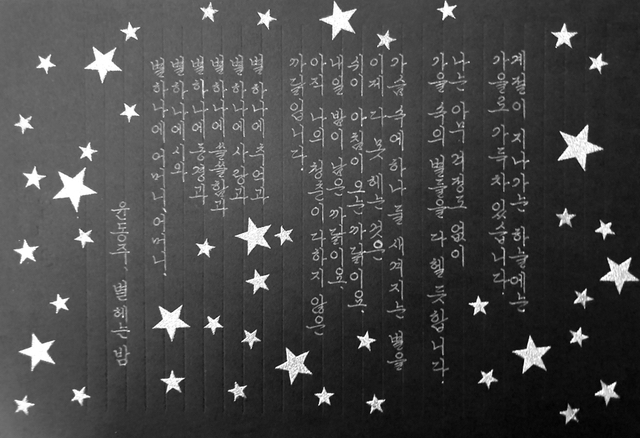 계절이 지나가는 하늘에는
가을로 가득 차 있습니다.
나는 아무 걱정도 없이
가을 속의 별들을 다 헬 듯합니다.
가슴 속에 하나 둘 새겨지는 별을
이제 다 못 헤는 것은
쉬이 아침이 오는 까닭이오,
내일 밤이 남은 까닭이오,
아직 나의 청춘이 다하지 않은
까닭입니다.
별 하나에 추억과
별 하나에 사랑과
별 하나에 쓸쓸함과
별 하나에 동경과
별 하나에 시와
별 하나에 어머니, 어머니.
윤동주, 별 헤는 밤